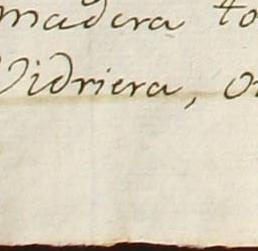 madera to
Vidriera, o